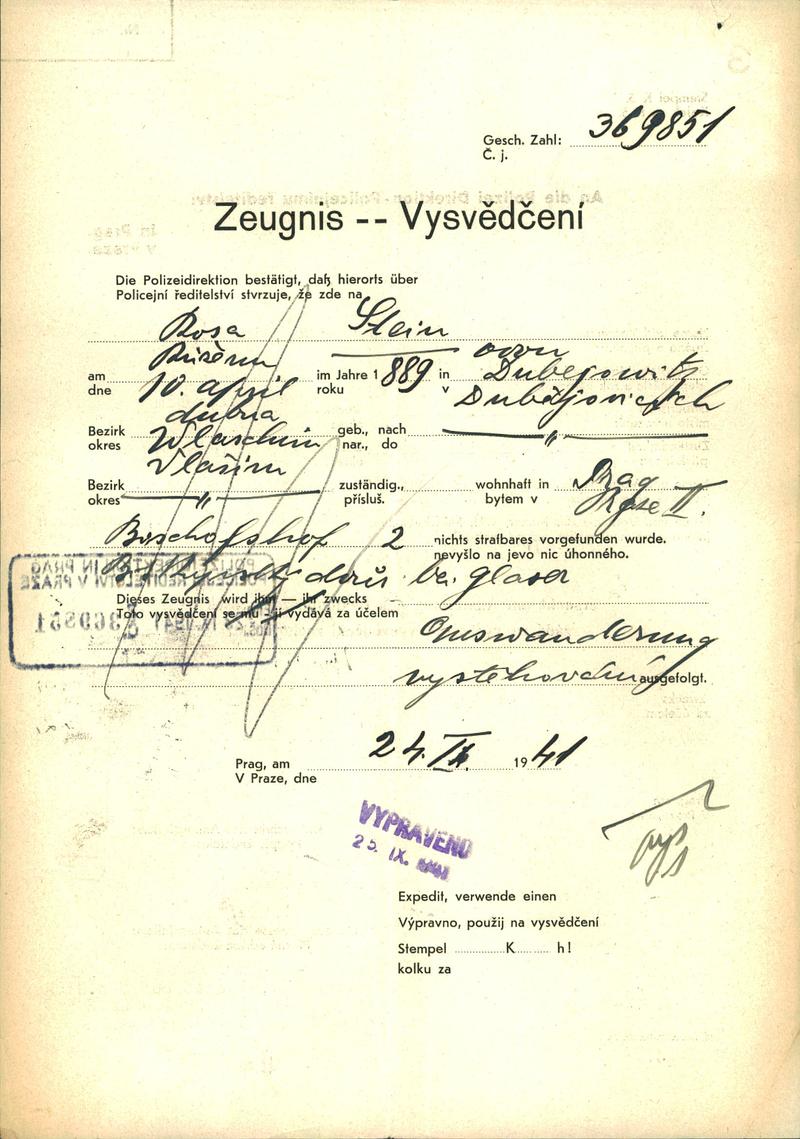 Gesch. Zahl: 369851
Č. j.
Zeugnis -- Vysvědčení
Die Polizeidirektion bestätigt, daß hierorts über
Policejní ředitelství stvrzuje, že zde na
Rosa Stein
Růžena ovou
am 10. april im Jahre 1889 in Dubejowitz
dne dubna roku v Dubějovicích
Bezirk Wlaschim geb., nach "
okres Vlašim nar., do
Bezirk " zuständig., wohnhaft in Prag
okres přísluš. bytem v Praze II.
Bischofshof 2 nichts strafbares vorgefunden wurde.
nevyšlo na jevo nic úhonného.
dvůr bei Glaser
Dieses Zeugnis wird ihm — ihr zwecks
Toto vysvědčení se mu - jí vydává za účelem
Auswanderung
vystěhování ausgefolgt.
Prag, am 24. IX. 1941
V Praze, dne
VYPRAVENO
25. IX. 1941
Expedit, verwende einen
Výpravno, použij na vysvědčení
Stempel K h!
kolku za